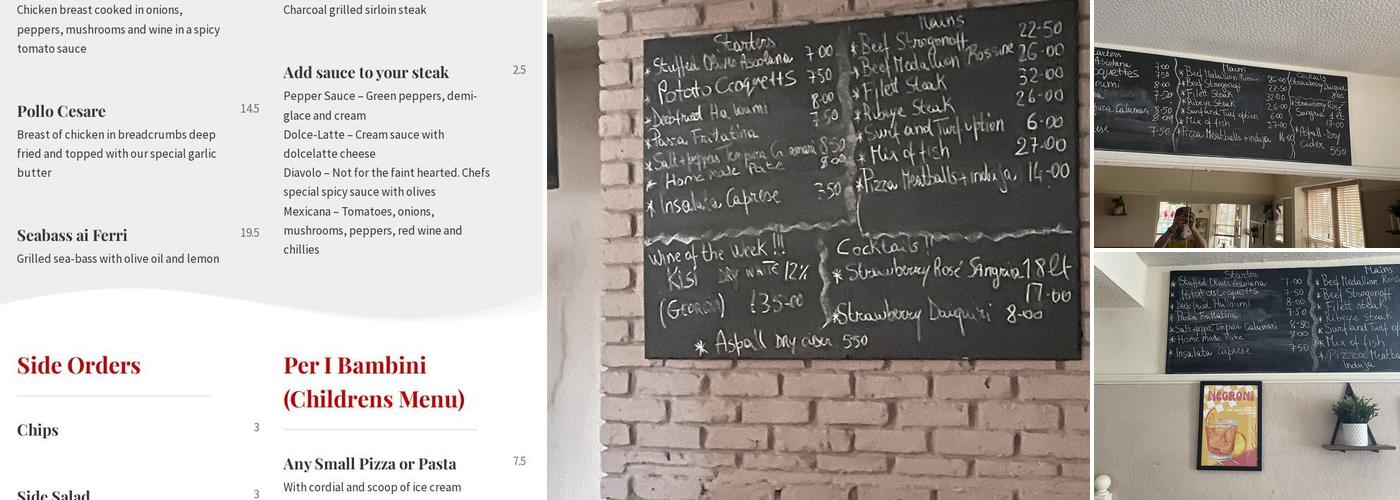 Chicken breast cooked in onions,
peppers, mushrooms and wine in a spicy
tomato sauce
Pollo Cesare 14.5
Breast of chicken in breadcrumbs deep
fried and topped with our special garlic
butter
Seabass ai Ferri 19.5
Grilled sea-bass with olive oil and lemon
Charcoal grilled sirloin steak
Add sauce to your steak 2.5
Pepper Sauce – Green peppers, demi-
glace and cream
Dolce-Latte – Cream sauce with
dolcelatte cheese
Diavolo – Not for the faint hearted. Chefs
special spicy sauce with olives
Mexicana – Tomatoes, onions,
mushrooms, peppers, red wine and
chillies
Side Orders
Chips 3
Side Salad 3
Per I Bambini
(Childrens Menu)
Any Small Pizza or Pasta 7.5
With cordial and scoop of ice cream
Starters
* Stuffed Olives Ascolana 7.00
* Potato Croquetts 7.50
* Deepfried Halloumi 8.00
* Pasta Frittatina 7.50
* Salt+pepper Tempura Calamari 8.50
* Home made Pate 8.00
* Insalata Caprese 7.50
Mains
* Beef Strogonoff 22-50
* Beef Medallion Rossine 26-00
* Filett Steak 32-00
* Ribeye Steak 26-00
* Surf and Turf option 6-00
* Mix of fish 27-00
* Pizza Meatballs + induja 14-00
Wine of the week !!!
Kisi DRY WHITE 12%
(Georgia) £35-00
* Aspall Dry cider 550
Cocktails !!
* Strawberry Rosé Sangria 1 lt
17-00
* Strawberry Daiquiri 8-00
Mains
* Beef Medallion 26-00
* Beef Strogonoff 22-50
* Filett Steak 32-00
* Ribeye Steak 26-00
* Surf and Turf option 6-00
* Mix of fish 27-00
* Pizza Meatballs + induja
Cocktails
Strawberry Daiquiri
8-00
* Strawberry Rosé
Sangria 1 lt
17-00
* Aspall-Dry
Cider 550
Starters
* Stuffed Olives Ascolana 7-00
* Potatoes Croquetts 7-50
* Deep fried Halloumi 8-00
* Pasta Frittatina 7-50
* Salt+pepper Tempura Calamari 8-50
* Home made Pate 8-00
* Insalata Caprese 750
Mains
* Beef Medallion Ross
* Beef Strogonoff
* Filett steak
* Ribeye steak
* Surf and Turf op
* Mix of fish
* Pizza Meatba
induja
NEGRONI